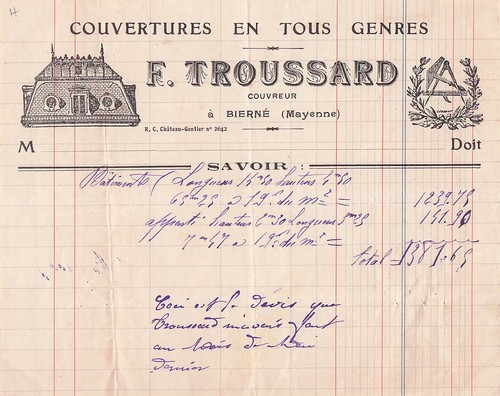 H
COUVERTURES EN TOUS GENRES
F. TROUSSARD
COUVREUR
à BIERNÉ (Mayenne)
R. C. Château-Gontier nº 2642
M
Doit
SAVOIR :
Bâtiments ( Longueur 14m50 hauteur 4m50
65m25 a 19f du m2 = 1239.75
appenti hauteur 2m30 Longueur
7m47 a 19f du m2 = 141.90
total = 1381.65
Ceci est le devis que
Troussard fait
au Mois de Mai
dernier